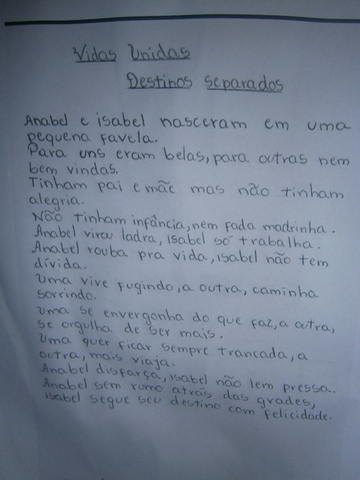 Vidas Unidas
Destinos separados
Anabel e isabel nasceram em uma
pequena favela.
Para uns eram belas, para outras nem
bem vindas.
Tinham pai e mãe mas não tinham
alegria.
Não tinham infância, nem fada madrinha.
Anabel virou ladra, isabel só trabalha.
Anabel rouba pra vida, isabel não tem
dívida.
Uma vive fugindo, a outra, caminha
sorrindo.
Uma se envergonha do que faz, a outra,
se orgulha de ser mais.
Uma quer ficar sempre trancada, a
outra, mais viaja.
Anabel disfarça, isabel não tem pressa.
Anabel sem rumo atrás das grades,
isabel segue seu destino com felicidade.